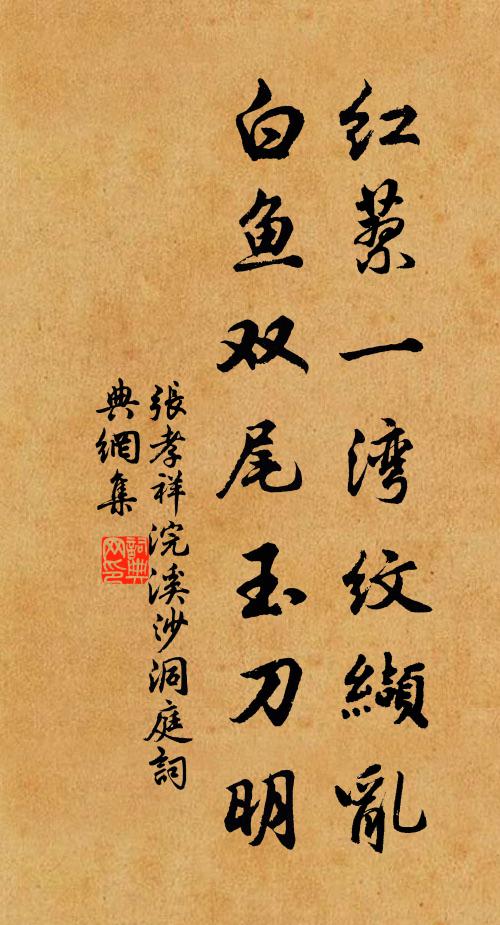 红蕖一湾纹缬乱
白鱼双尾玉刀明
張孝祥浣溪沙洞庭詞
典網集
詞典网印